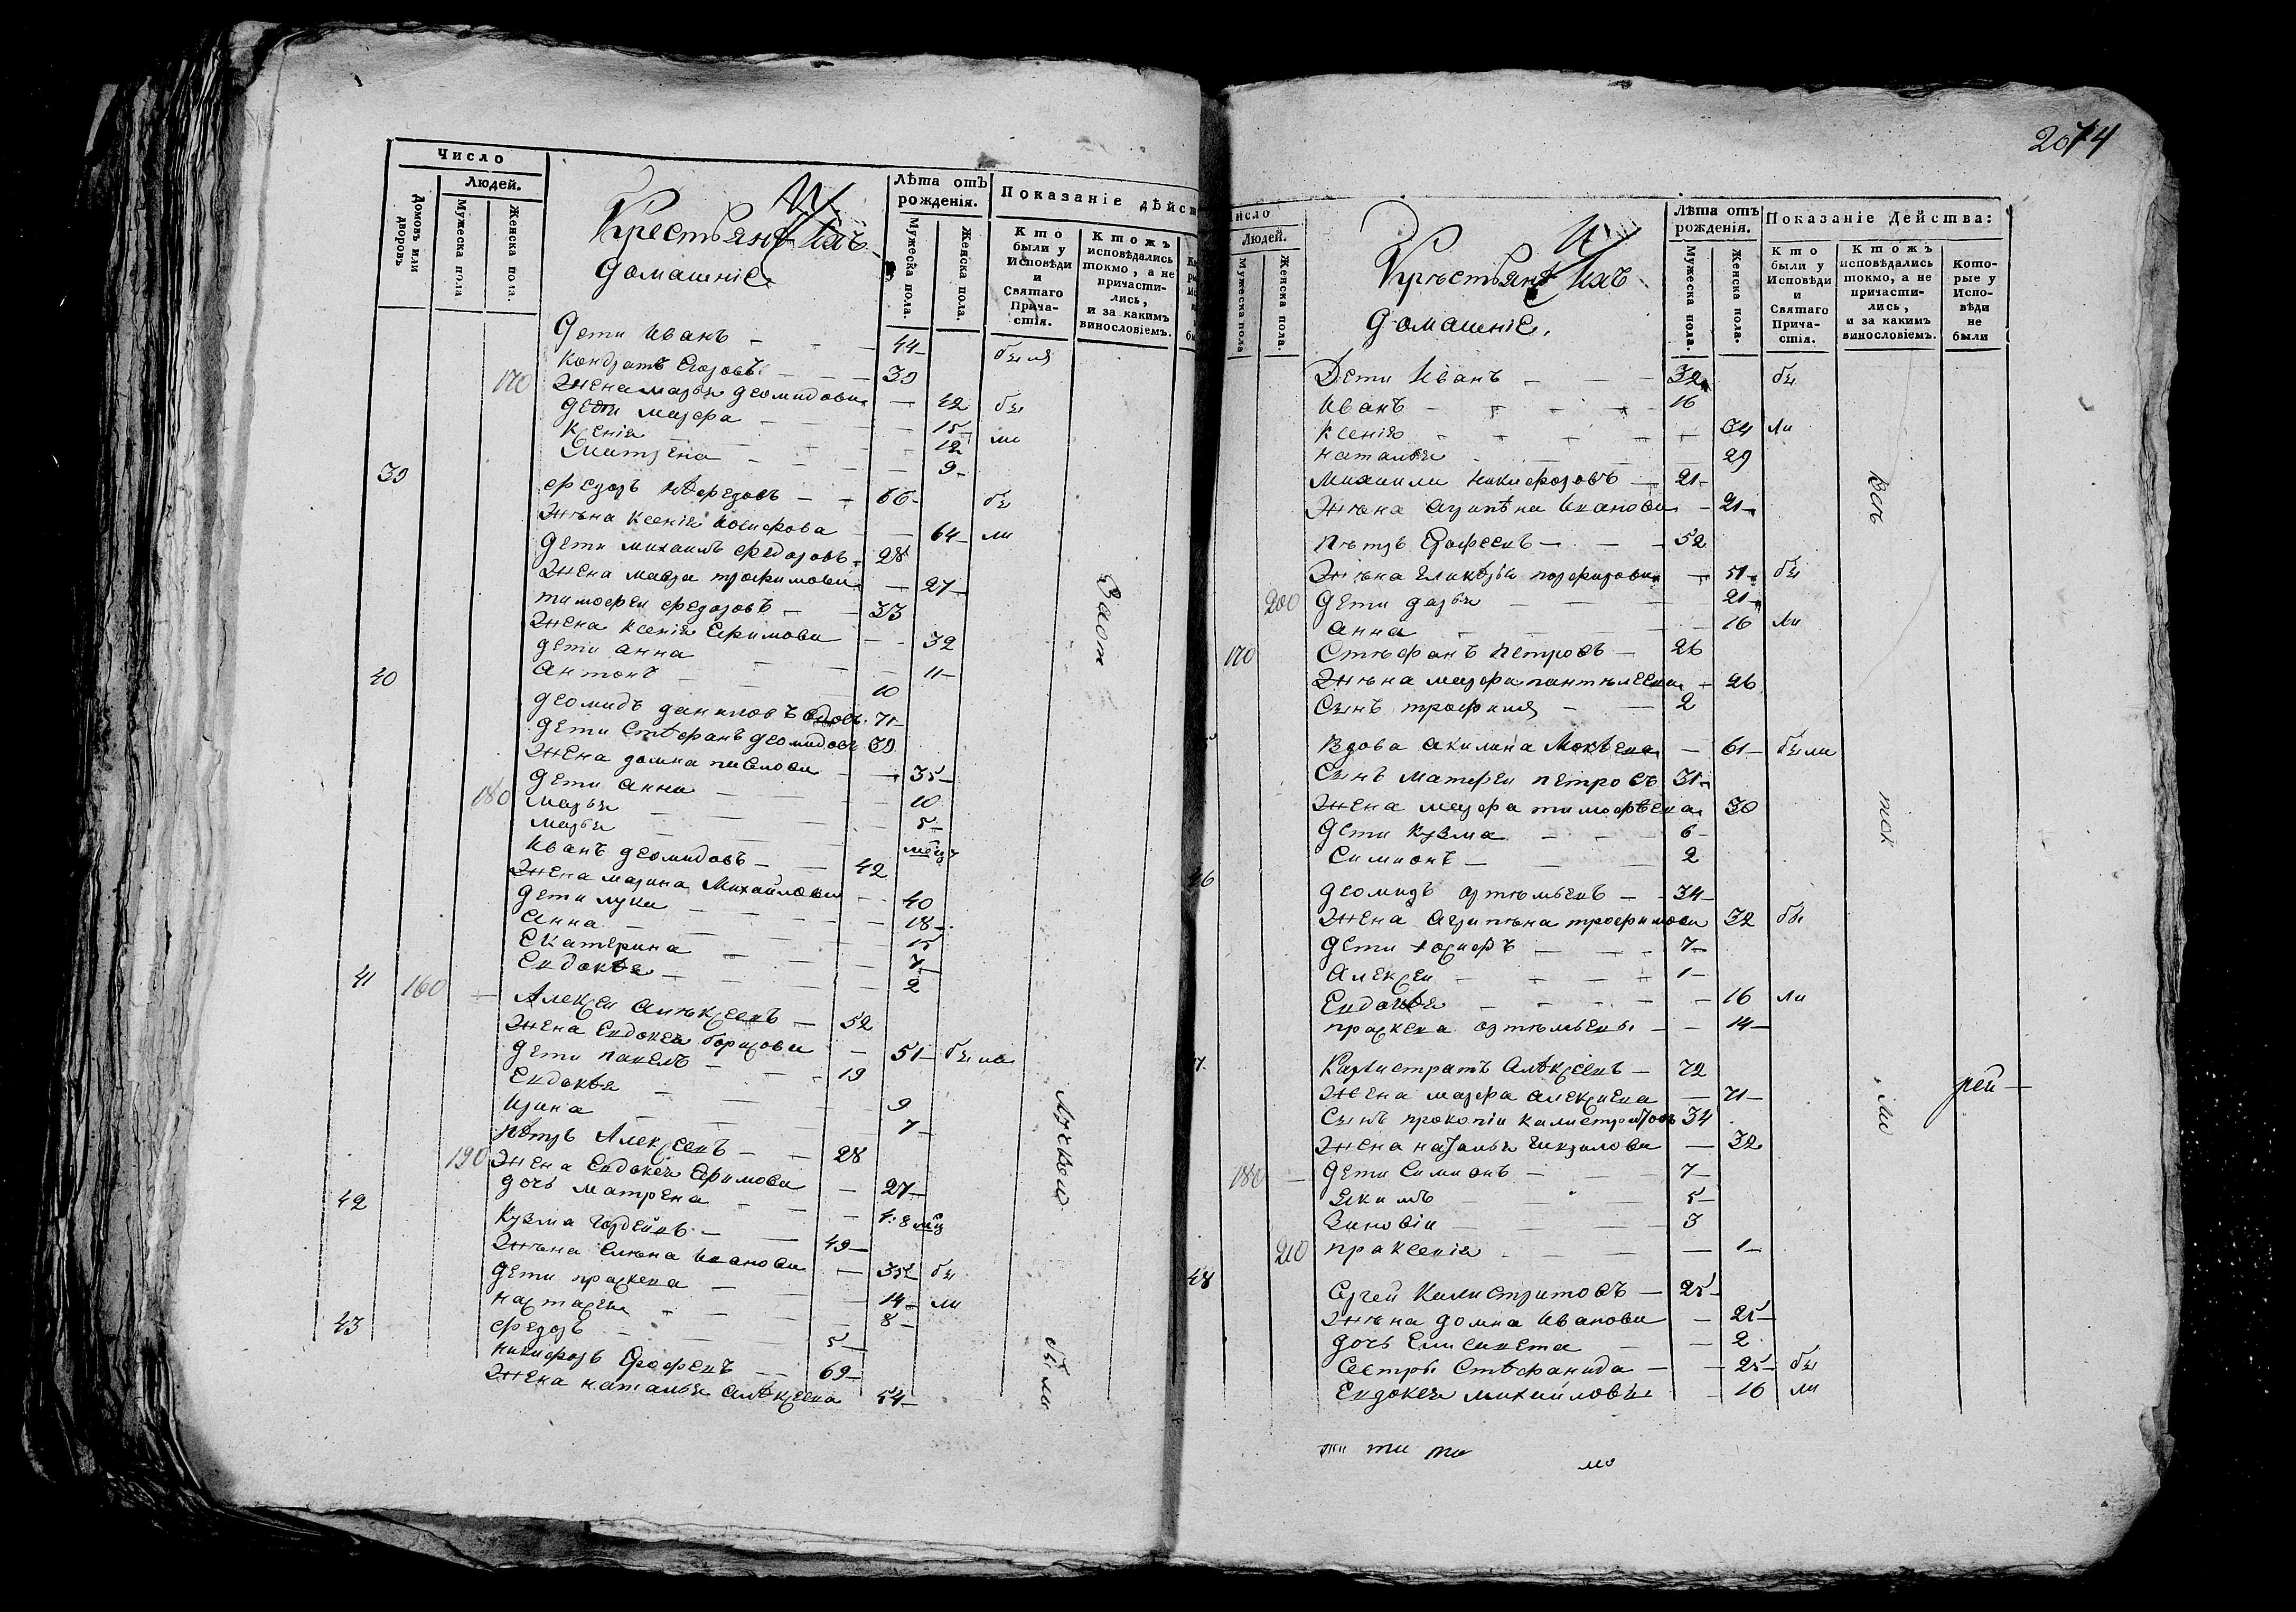 Число
Людей.
Домовъ или дворовъ
Мужеска пола
Женска пола.
Крестьяне и ихъ
домашніе
Лѣта отъ рожденія.
Мужеска пола.
Женска пола.
Показаніе дѣйст
Кто были у Исповѣди и Святаго Причастія.
Ктожъ исповѣдались токмо, а не причастились, и за какимъ винословіемъ.
Дети Иванъ — 44 были
Кондратъ Егоровъ — 39
170 Жена марья деомидова — 42 бы
дети марфа — 15
Ксенія — 12 ли
Матрена — 9
39 Федоръ Нефедовъ — 66 бы
Жена Ксенія Иосифова — 64 ли
дети михаилъ федоровъ 28
Жена мавра трофимова — 27
тимофеи федоровъ — 33
Жена Ксенія Ефимова — 32
дети анна — 11
антонъ — 10
40 деомидъ даниловъ вдовъ 71
дети Стефанъ деомидовъ 39
Жена домна павлова — 35
дети анна — 10
180 марья — 5
марья — месяц
Иванъ деомидовъ — 42
Жена марина Михайлова — 40
дети лука — 18
анна — 15
Екатерина — 7
Евдокея — 2
41 160 Алексеи алексеевъ — 52
Жена Евдокея борисова — 51 были
дети павелъ — 19
Евдокея — 9
Ирина — 7
Петръ Алексеевъ — 28
190 Жена Евдокея Ефимова — 27
дочь матрена — 1: 8 мец
42 Кузма Гордеевъ — 49
Жена Елена Иванова — 35 бы
дети прасковя — 14 ли
настасея — 8
федоръ — 5
43 никифоръ Ерофеевъ — 69
Жена наталья алексеева 54
были
2074
исло
Людей.
Мужеска пола
Женска пола.
Крестьяне и ихъ
домашніе.
Лѣта отъ рожденія.
Мужеска пола.
Женска пола.
Показаніе Дейсшва:
Кто были у Исповѣди и Святаго Причастія.
Ктожъ исповѣдались токмо, а не причастились, и за какимъ винословіемъ.
Которые у Исповѣди не были
Дети Иванъ — 32 бы
Иванъ — 16
Ксенія — 34 ли
наталья — 29
Михаили никифоровъ — 21
Жена агрипѣна Иванова — 21
Петръ Ерофеевъ — 52
Жена гликерья порфирова — 51 бы
200 дети дарья — 21
анна — 16 ли
170 Стефанъ петровъ — 26
Жена марфа пантелеева — 26
Сынъ трофимъ — 2
Вдова акилина Мокеева — 61 были
Сынъ матфеи петровъ 31
Жена марфа тимофеева 30
дети Кузма — 6
Симионъ — 2
46 деомидъ артемьевъ — 34
Жена агрипена трофимова 32 бы
дети иосифъ — 7
Алексеи — 1
Евдокея — 16 ли
прасковя артемьевы — 14
47 Калистратъ алексеевъ — 72
Жена марфа алексиева — 71
Сынъ прокопіи калистратовъ 34
Жена наталья — 32
180 дети Симионъ — 7
якимъ — 5
Зиновіи — 3
210 праксенія — 1
48 Сергеи Калистратовъ — 25
Жена домна Иванова — 25
дочь Елисавета — 2
Сестры Стефанида — 25 бы
Евдокея михайловы — 16 ли
рей
ти ти ти